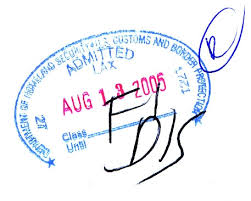 DEPARTMENT OF HOMELAND SECURITY U.S. CUSTOMS AND BORDER PROTECTION
ADMITTED
LAX
AUG 13 2005
1771
Class
Until
F1
D/S
R